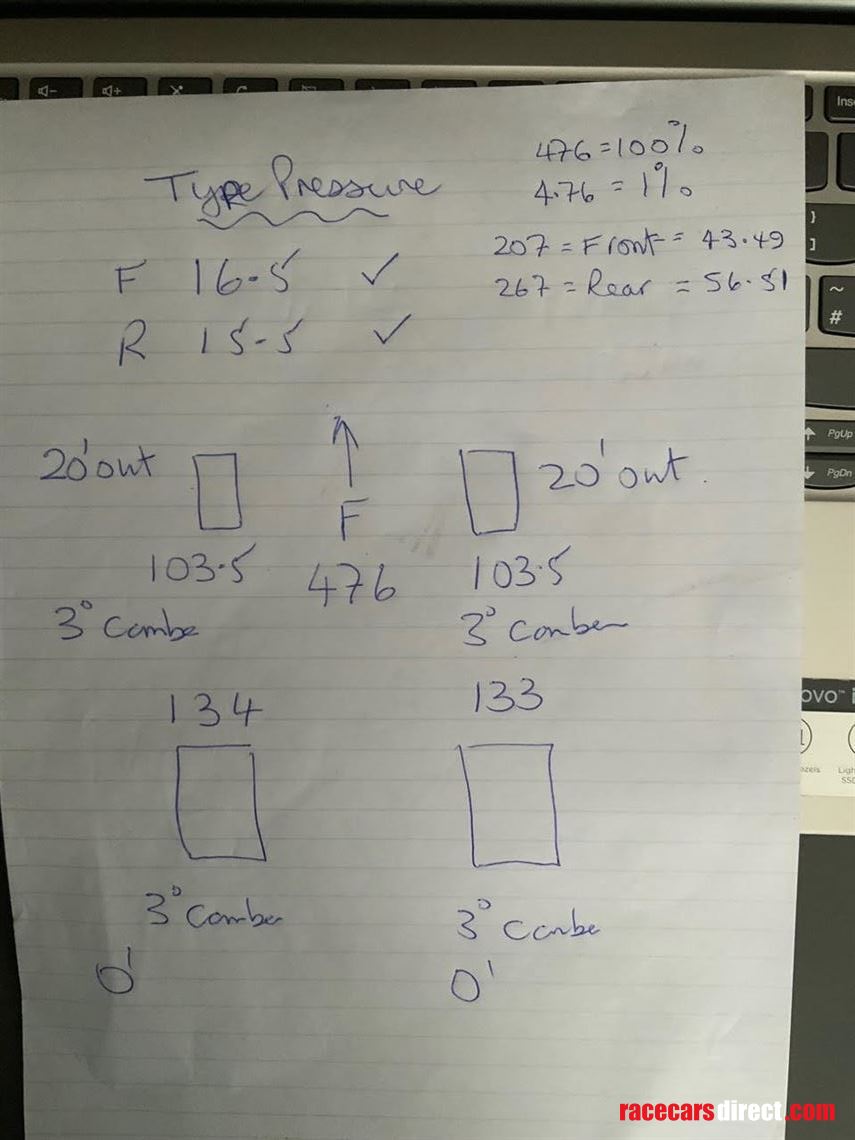 476 = 100%
4.76 = 1%
Type Pressure
207 = Front = 43.49
267 = Rear = 56.51
F 16.5 ✓
R 15.5 ✓
20' out
20' out.
F
103.5
476
103.5
3° Cambe
3° Camber
134
133
3° Camber
3° Cambe
0'
0'
Ins
}
]
~
#
PgUp
PgDn
ovo™
SSD
racecarsdirect.com